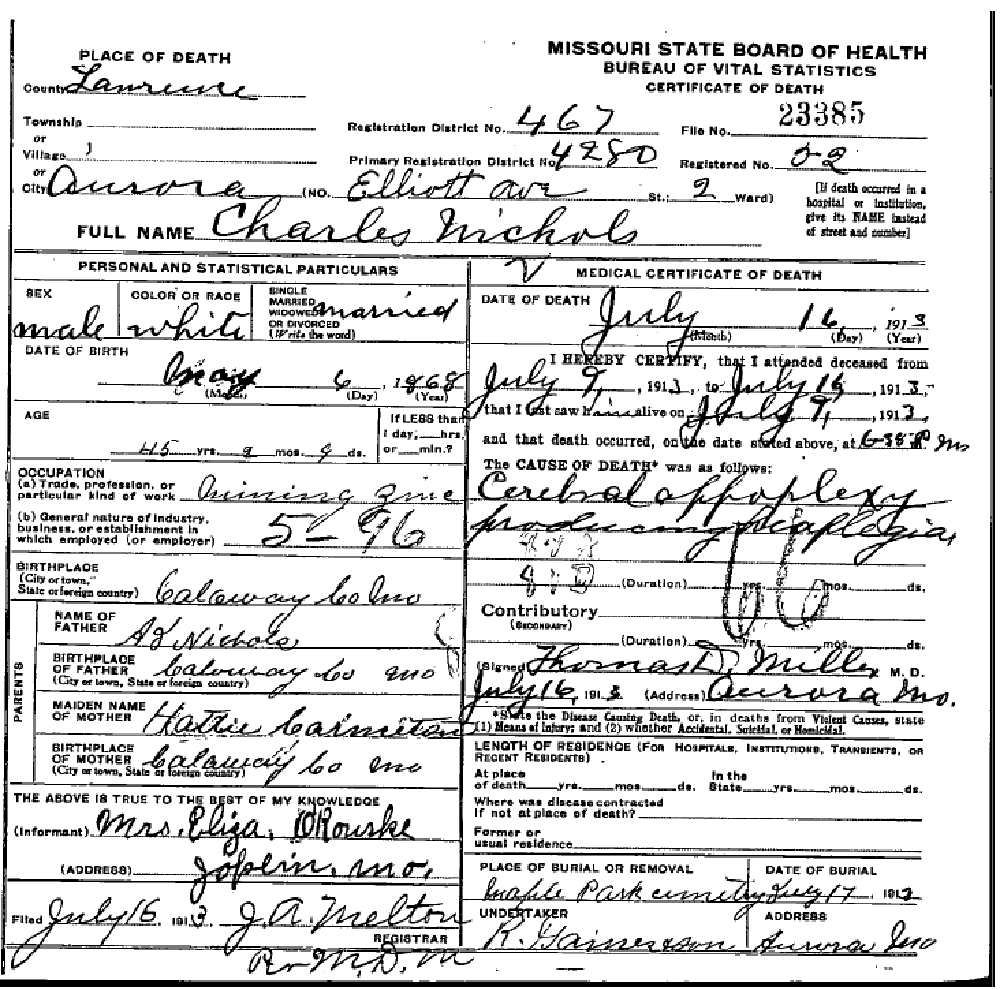 MISSOURI STATE BOARD OF HEALTH
BUREAU OF VITAL STATISTICS
CERTIFICATE OF DEATH
PLACE OF DEATH
County Lawrence
Township
or
Village
or
City Aurora (NO. Elliott Ave St.; 2 Ward)
Registration District No. 467 File No. 23385
Primary Registration District No. 4280 Registered No. 52
[If death occurred in a
hospital or institution,
give its NAME instead
of street and number]
FULL NAME Charles Nichols
PERSONAL AND STATISTICAL PARTICULARS
SEX
male
COLOR OR RACE
white
SINGLE
MARRIED
WIDOWED
OR DIVORCED
(Write the word)
married
DATE OF BIRTH
May 6, 1868
(Month) (Day) (Year)
AGE
45 yrs. 2 mos. 9 ds.
If LESS than
1 day, hrs.
or min.?
OCCUPATION
(a) Trade, profession, or
particular kind of work mining zinc
(b) General nature of industry,
business, or establishment in
which employed (or employer) 5-96
BIRTHPLACE
(City or town,
State or foreign country) Calaway Co Mo
PARENTS
NAME OF
FATHER Nichols
BIRTHPLACE
OF FATHER
(City or town, State or foreign country) Caloway Co Mo
MAIDEN NAME
OF MOTHER Hattie
BIRTHPLACE
OF MOTHER
(City or town, State or foreign country) Calaway Co Mo
THE ABOVE IS TRUE TO THE BEST OF MY KNOWLEDGE
(Informant) Mrs. Eliza, O'Rourke
(ADDRESS) Joplin, Mo.
Filed July 16 1913 J.A. Melton
REGISTRAR
M.D.M
MEDICAL CERTIFICATE OF DEATH
DATE OF DEATH
July 16, 1913
(Month) (Day) (Year)
I HEREBY CERTIFY, that I attended deceased from
July 9, 1913, to July 16, 1913,
that I last saw him alive on July 9, 1913,
and that death occurred, on the date stated above, at m
The CAUSE OF DEATH* was as follows:
Cerebral appoplexy
producing
(Duration) yrs. mos. ds.
Contributory
(SECONDARY)
(Duration) yrs. mos. ds.
(Signed) Thomas D. Miller, M. D.
July 16, 1913 (Address) Aurora Mo.
*State the Disease Causing Death, or, in deaths from Violent Causes, state
(1) Means of Injury; and (2) whether Accidental, Suicidal, or Homicidal.
LENGTH OF RESIDENCE (FOR HOSPITALS, INSTITUTIONS, TRANSIENTS, OR
RECENT RESIDENTS)
At place
of death yrs. mos. ds.
In the
State yrs. mos. ds.
Where was disease contracted
if not at place of death?
Former or
usual residence
PLACE OF BURIAL OR REMOVAL
Maple Park cemetry
DATE OF BURIAL
July 17 1913
UNDERTAKER
ADDRESS
Aurora Mo